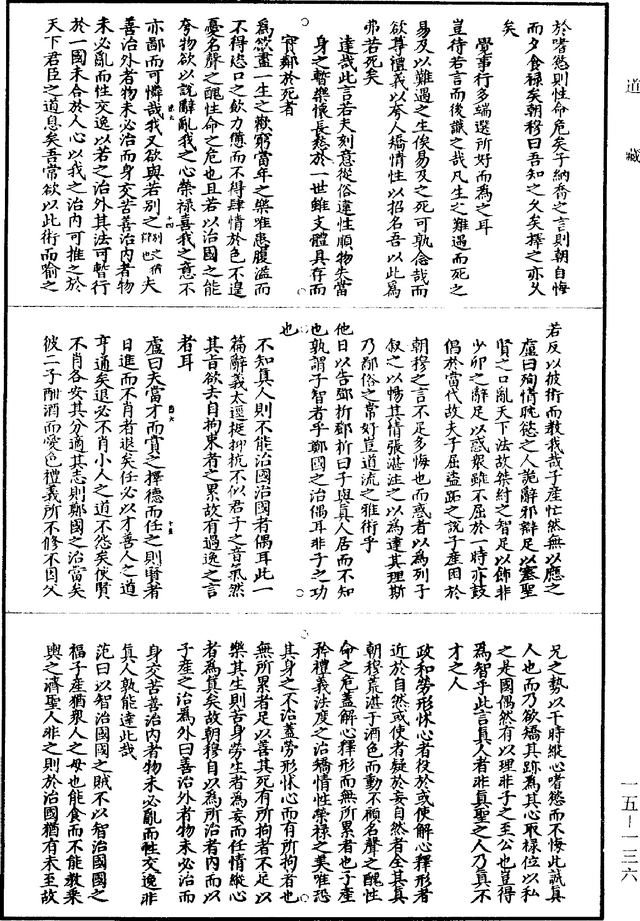 道藏
於嗜慾則性命危矣子納喬之言則朝自悔
而夕食祿矣朝穆曰吾知之久矣擇之亦久
矣
覺事行多端選所好而為之耳
豈待若言而後識之哉凡生之難遇而死之
易及以難遇之生俟易及之死可孰念哉而
欲尊禮義以夸人矯情性以招名吾以此為
弗若死矣
達哉此言若夫刻意從俗違性順物失當
身之暫樂懷長愁於一世雖支體具存而
實鄰於死者
為欲盡一生之歡窮當年之樂唯患腹溢而
不得恣口之飲力憊而不得肆情於色不遑
憂名聲之醜性命之危也且若以治國之能
夸物欲以說辭亂我之心榮祿喜我之意不
亦鄙而可憐哉我又欲與若別之夫
善治外者物未必治而身交苦善治內者物
未必亂而性交逸以若之治外其法可暫行
於一國未合於人心以我之治內可推之於
天下君臣之道息矣吾常欲以此術而喻之
若反以彼術而教我哉子產忙然無以應之
盧曰殉情眈慾之人詭辭邪辯足以塞聖
賢之口亂天下法故桀紂之智足以飾非
少卯之辭足以惑衆雖不屈於一時亦鼓
倡於當代故夫子屈盜跖之說子產困於
朝穆之言不足多悔也而惑者以為列子
敘之以暢其情張湛注之以為達其理斯
乃鄙俗之常好豈道流之雅術乎
他日以告鄧析鄧析曰子與真人居而不知
也孰謂子智者乎鄭國之治偶耳非子之功
也
不知真人則不能治國治國者偶耳此一
篇辭義太逕挺抑抗不似君子之音氣然
其旨欲去自拘束者之累故有過逸之言
者耳
盧曰夫當才而賞之擇德而任之則賢者
日進而不肖者退矣任必以才善人之道
亨通矣退必不肖小人之道不怨矣使賢
不肖各安其分適其志則鄭國之治當矣
彼二子酣酒而愛色禮義所不修不因父
兄之勢以干時縱心嗜慾而不悔此誠真
人也而乃欲矯其跡為其心取祿位以私
之是國偶然有以理非子之至公也豈得
為智乎此言真人者非真聖之人乃真不
才之人
政和勞形怵心者役於或使解心釋形者
近於自然或使者疑於妄自然者全其真
朝穆荒湛于酒色而動不顧名聲之醜性
命之危蓋解心釋形而無所累者也子產
矜禮義法度之治矯情性榮祿之美唯恐
其身之不治蓋勞形怵心而有所拘者也
無所累者足以善其死有所拘者不足以
樂其生則苦身勞生者為妄而任情縱心
者為真矣故朝穆自以為所治者內而以
子產之治為外曰善治外者物未必治而
身交苦善治內者物未必亂而性交逸非
真人孰能達此哉
范曰以智治國國之賊不以智治國國之
福子產猶衆人之母也能食而不能教乘
輿之濟聖人非之則於治國猶有未至故
一五－一三六